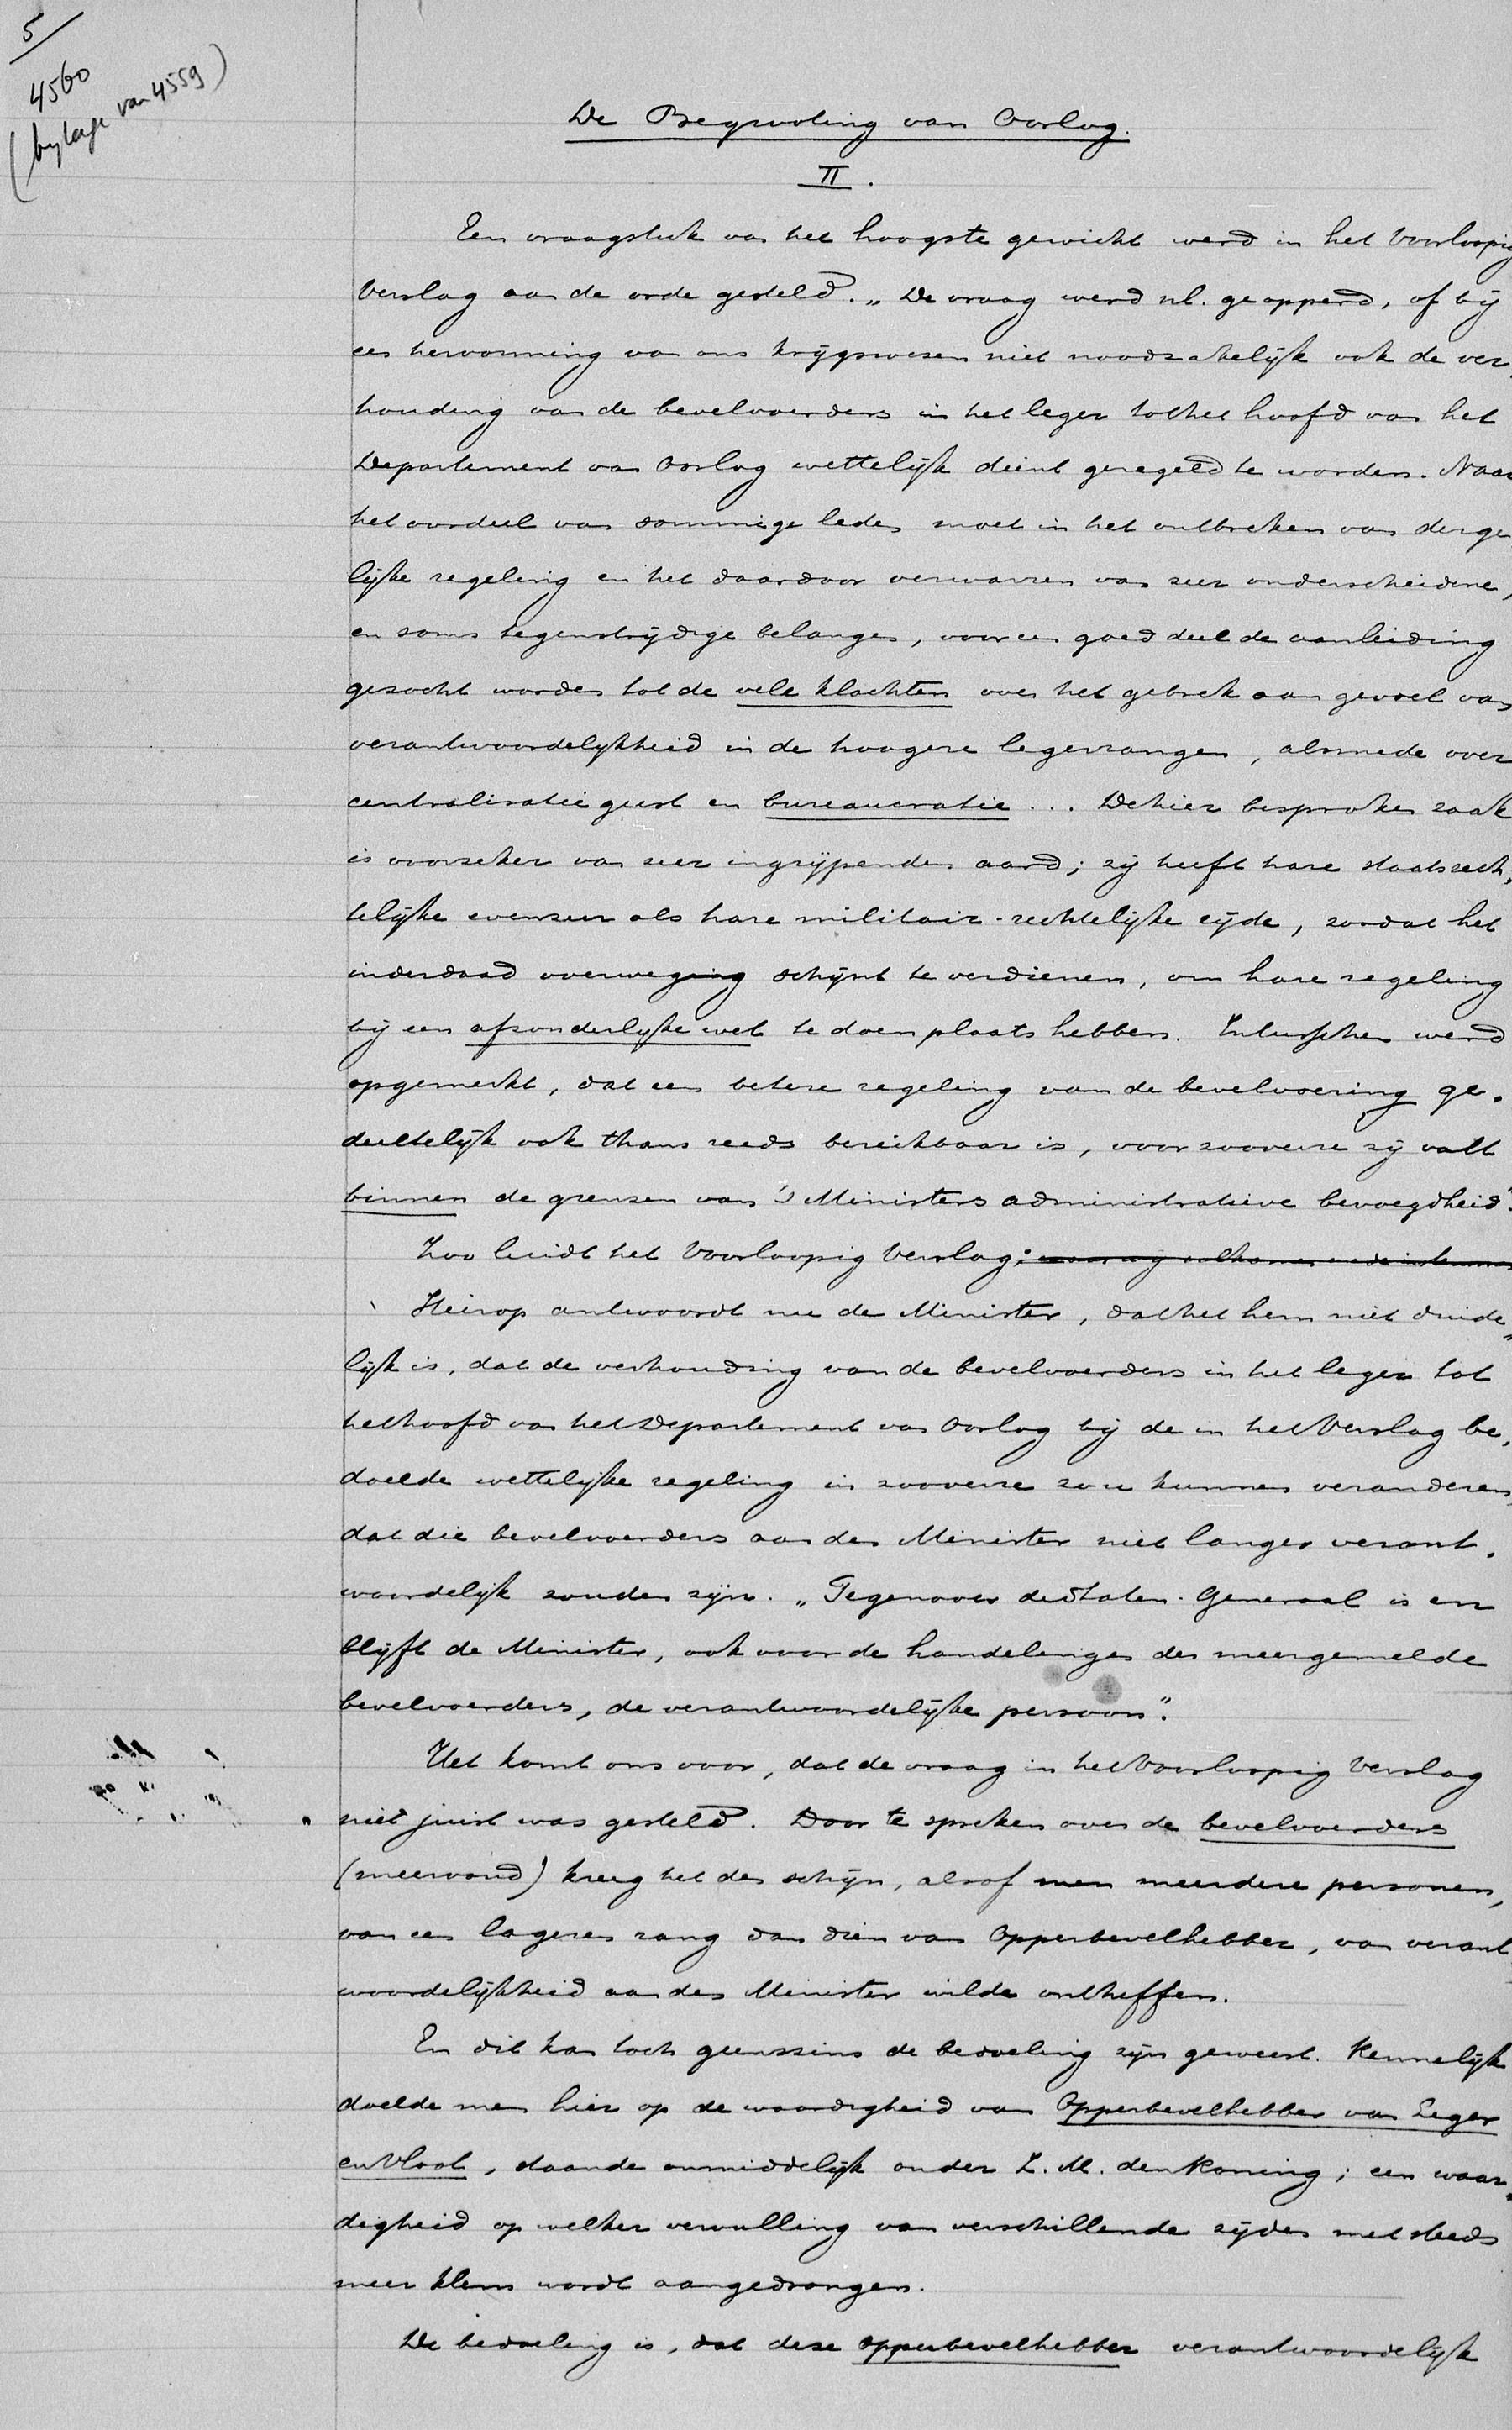 5
4560
(bylage van 4559)
De Begrooting van Oorlog.
II.
Een vraagstuk van het hoogste gewicht werd in het Voorloopig
Verslag aan de orde gesteld. „De vraag werd nl. geopperd, of bij
een hervorming van ons krijgswezen niet noodzakelijk ook de ver-
houding van de bevelvoerders in het leger tot het hoofd van het
Departement van Oorlog wettelijk dient geregeld te worden. Naar
het oordeel van sommige leden moet in het ontbreken van derge
lijke regeling en het daardoor verwarren van zeer onderscheidene,
en soms tegenstrijdige belangen, voor een goed deel de aanleiding
gezocht worden tot de vele klachten over het gebrek aan gevoel van
verantwoordelijkheid in de hoogere legerrangen, alsmede over
centralisatiegeest en bureaucratie... De hier besproken zaak
is voorzeker van zeer ingrijpenden aard; zij heeft hare staatsrech-
telijke evenzeer als hare militair-rechtelijke zijde, zoodat het
inderdaad overweging schijnt te verdienen, om hare regeling
bij een afzonderlijke wet te doen plaats hebben. Intusschen werd
opgemerkt, dat een betere regeling van de bevelvoering ge-
deeltelijk ook thans reeds bereikbaar is, voor zooverre zij valt
binnen de grenzen van 's Ministers administratieve bevoegdheid."
Zoo luidt het Voorloopig Verslag:
Hierop antwoordt nu de Minister, dat het hem niet duide-
lijk is, dat de verhouding van de bevelvoerders in het leger tot
het hoofd van het Departement van Oorlog bij de in het Verslag be-
doelde wettelijke regeling in zooverre zou kunnen veranderen,
dat die bevelvoerders aan den Minister niet langer verant-
woordelijk zouden zijn. „Tegenover de Staten-Generaal is en
blijft de Minister, ook voor de handelingen der meergemelde
bevelvoerders, de verantwoordelijke persoon".
Het komt ons voor, dat de vraag in het Voorloopig Verslag
niet juist was gesteld. Door te spreken over de bevelvoerders
(meervoud) kreeg het den schijn, alsof men meerdere personen,
van een lageren rang dan dien van Opperbevelhebber, van verant
woordelijkheid aan den Minister wilde ontheffen.
En dit kan toch geenszins de bedoeling zijn geweest. Kennelijk
doelde men hier op de waardigheid van Opperbevelhebber van Leger
en Vloot, staande onmiddelijk onder Z. M. den Koning; een waar-
digheid op welker vervulling van verschillende zijden met steeds
meer klem wordt aangedrongen.
De bedoeling is, dat deze opperbevelhebber verantwoordelijk